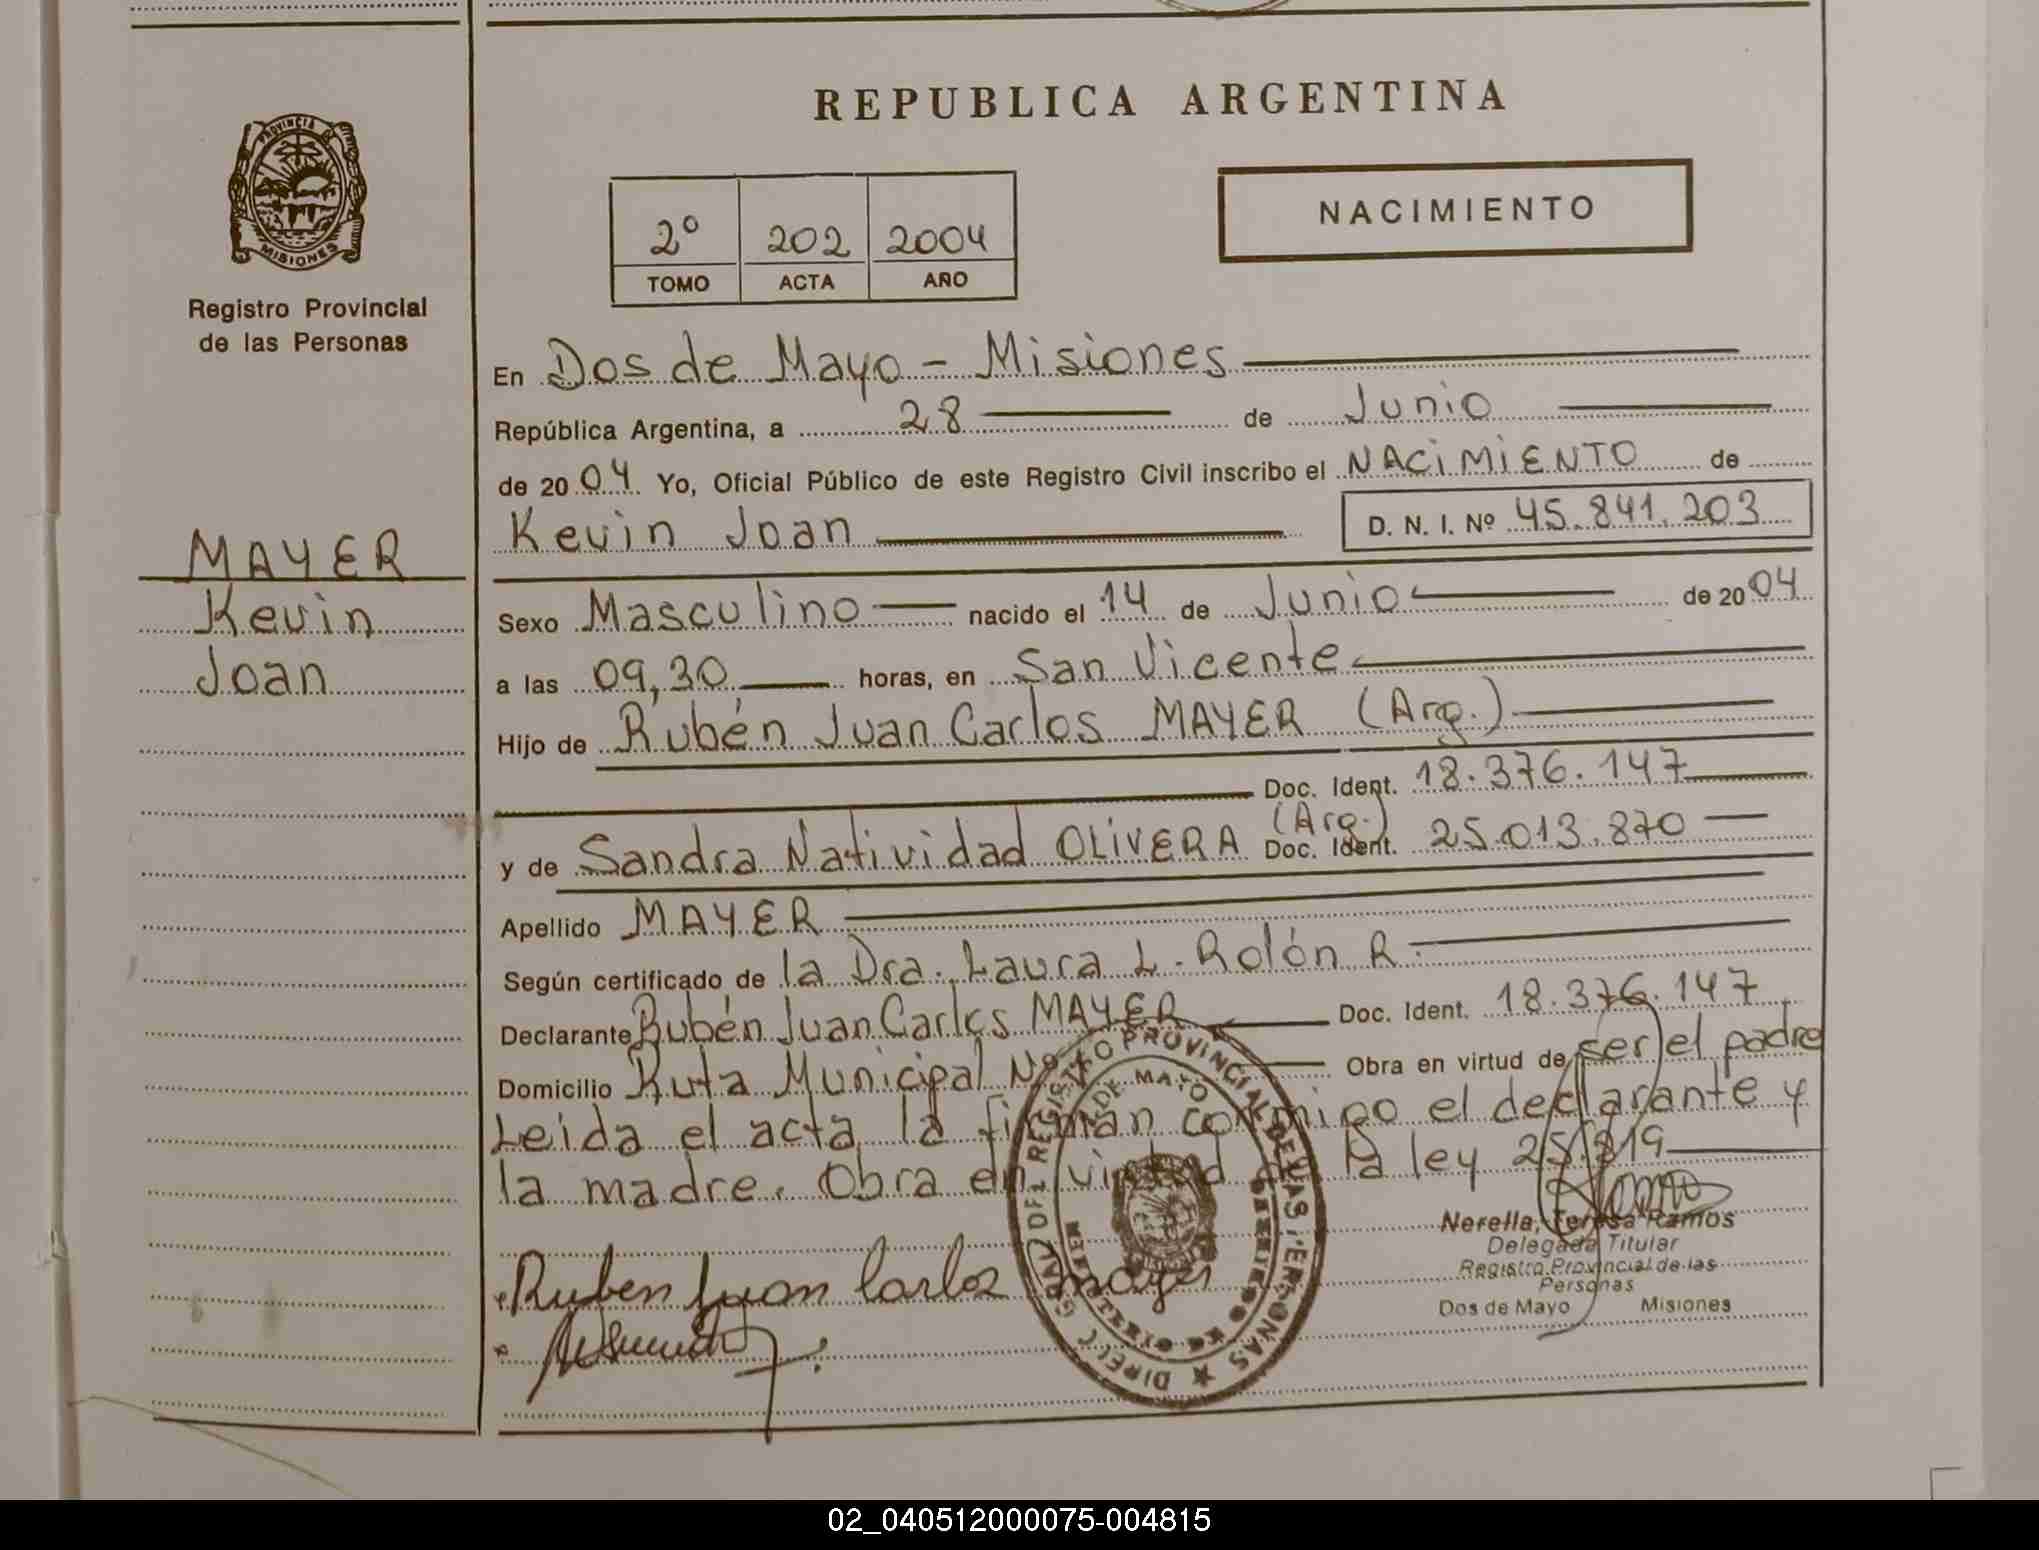 REPUBLICA ARGENTINA
PROVINCIA DE MISIONES
Registro Provincial
de las Personas
2º 202 2004
TOMO ACTA AÑO
NACIMIENTO
En Dos de Mayo - Misiones
República Argentina, a 28 de Junio
de 2004 Yo, Oficial Público de este Registro Civil inscribo el NACiMiENTO de
Kevin Joan D. N. I. Nº 45.841.203
MAYER
Kevin
Joan
Sexo Masculino nacido el 14 de Junio de 2004
a las 09,30 horas, en San Vicente
Hijo de Rubén Juan Carlos MAYER (Arg.)
Doc. Ident. 18.376.147
y de Sandra Natividad OLiVERA (Arg.) Doc. Ident. 25.013.870
Apellido MAYER
Según certificado de la Dra. Laura L. Rolón R.
Declarante Rubén Juan Carlos MAYER Doc. Ident. 18.376.147
Domicilio Ruta Municipal Nº Obra en virtud de ser el padre
Leida el acta la firman conmigo el declarante y
la madre. Obra en virtud de la ley 25.819
Nerella, Teresa Ramos
Delegada Titular
Registro Provincial de las
Personas
Dos de Mayo Misiones
Ruben Juan Carlos Mayer
02_040512000075-004815